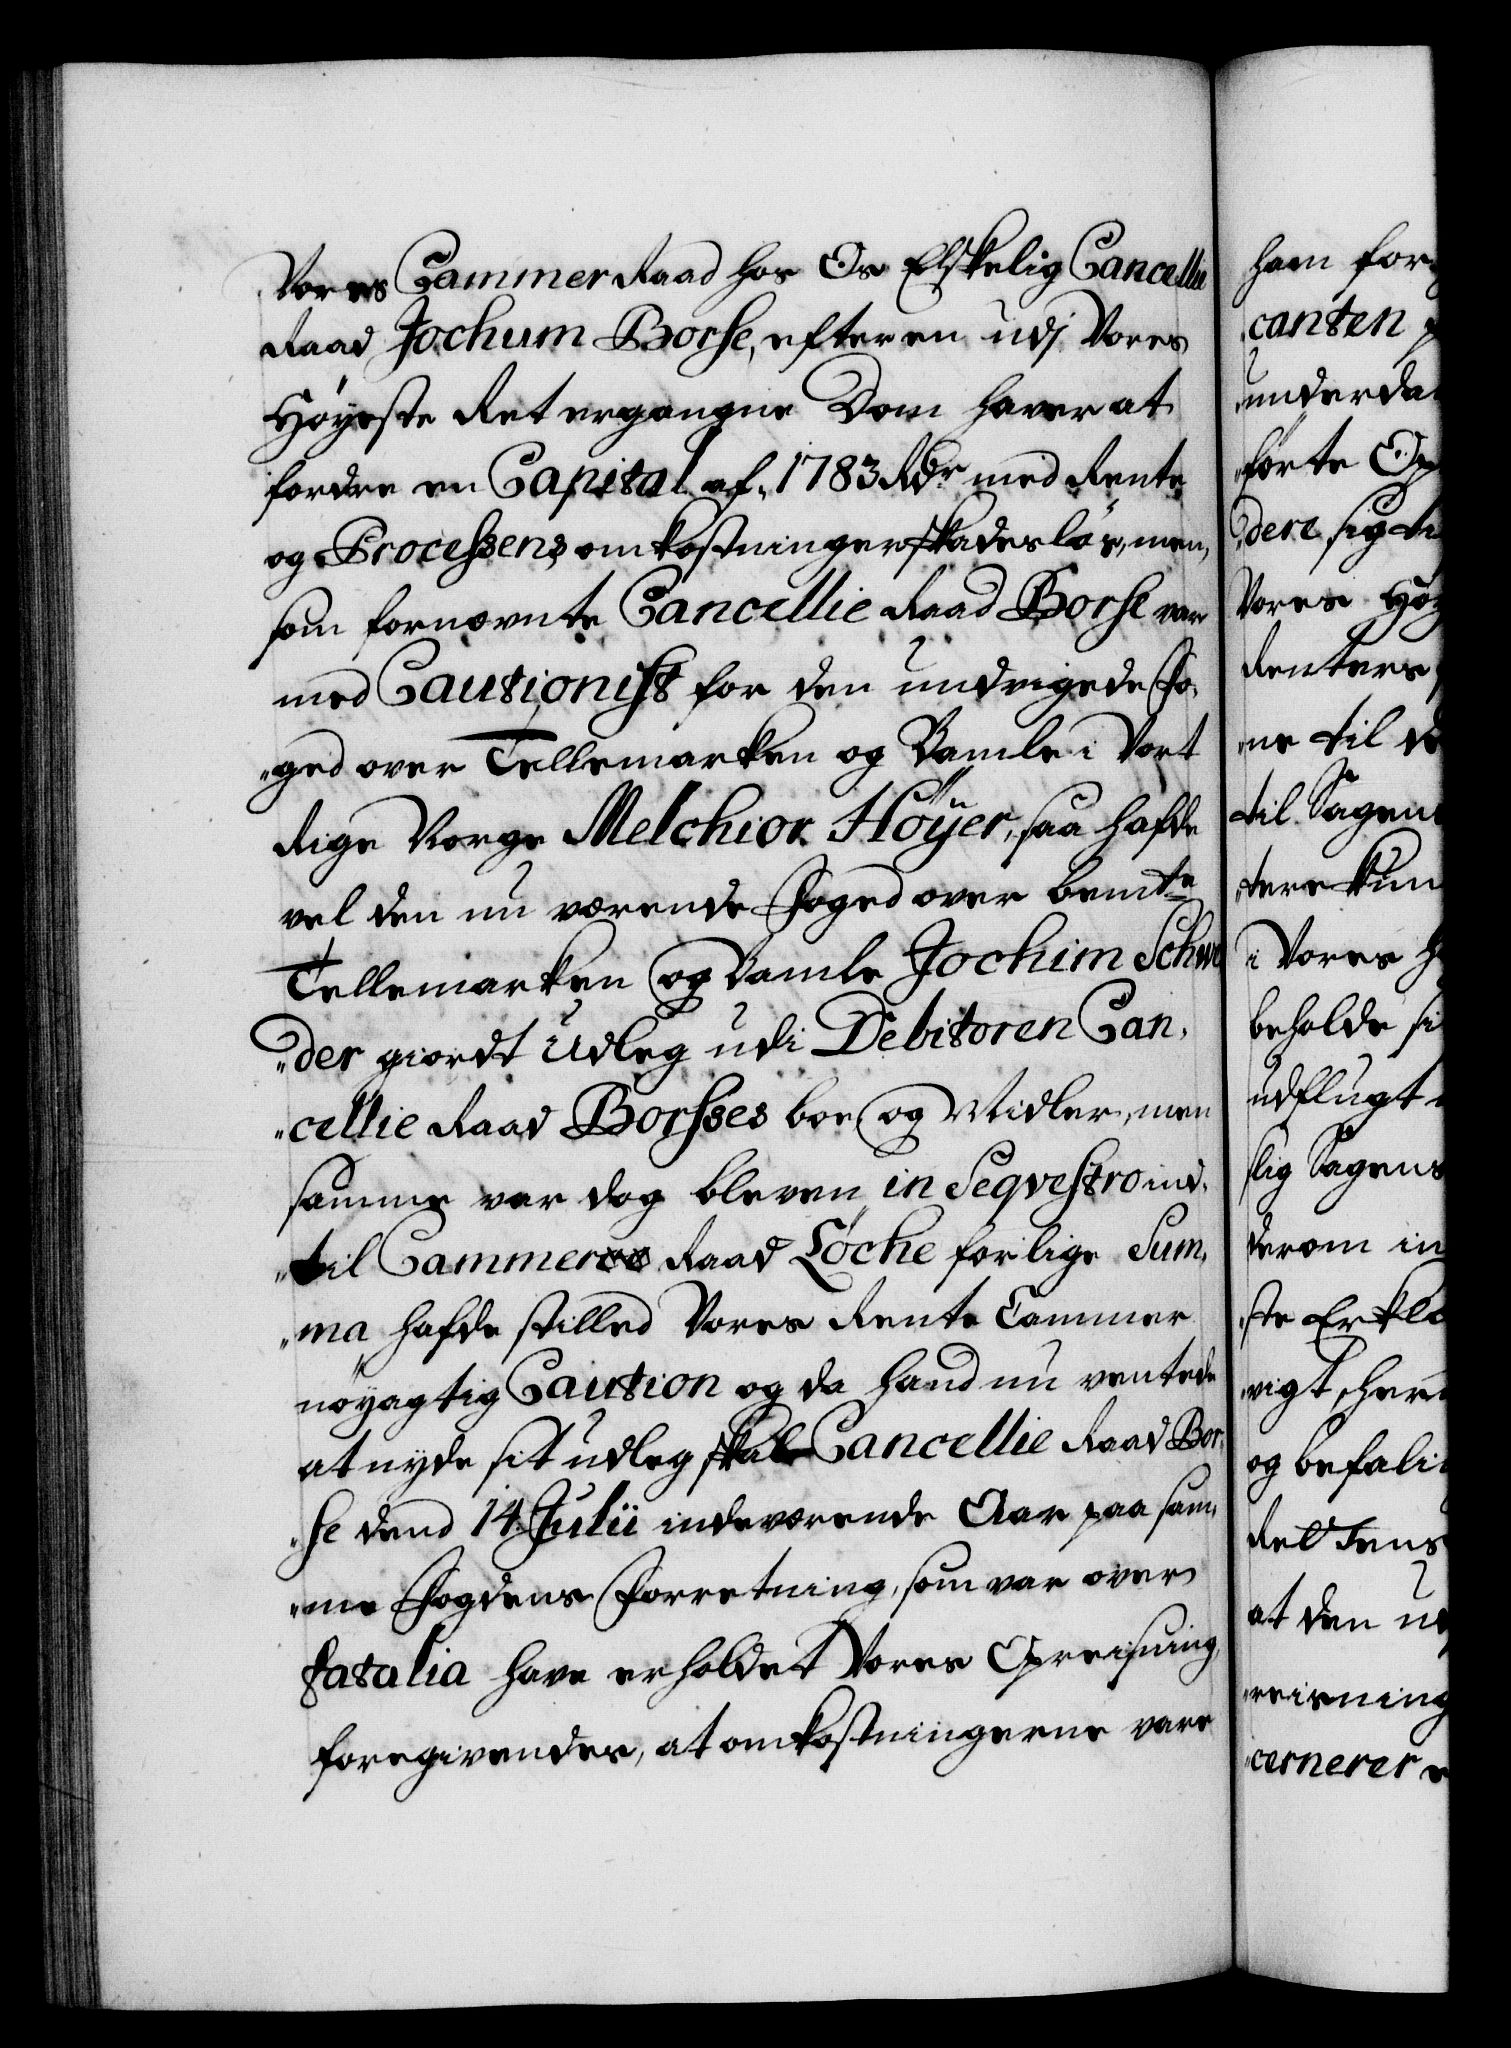 Vores Cammer Raad hos Os Elskelig Cancellie
Raad Jochum Borse, efter en udj Vores
Høyeste Ret ergangne Dom haver at
fordre en Capital af 1783 Rdr med Rente
og Processens omkostninger skadesløs, men,
som fornævnte Cancellie Raad Borse var
med Cautionist for den undvigede Fo-
„ged over Tellemarken og Bamle i Vort
Rige Norge Melchior Høÿer, saa hafde
vel den nu værende Foged over bemte
Tellemarken og Bamle Jochim Schwe
„der giordt Udleg udi Debitoren Can-
„cellie Raad Borsses boe og Midler, men
samme var dog bleven in Seqvestro ind-
„til Cammer Raad Løche for lige Sum-
„ma hafde stilled Vores Rente Cammer
nøyagtig Caution og da hand nu ventede
at nyde sit udleg skal Cancellie Raad Bor-
„se dend 14 Julii indeværende Aar paa sam-
„me Fogdens Forretning, som var over
fatalia have erholdet Vores Opreisning,
foregivendes, at omkostningerne vare
ham for
canten
underda
førte Op
dere sig ti
Vores Høy
Renters
„ne til de
til Sagen
tere kun
i Vores H
beholde si
udflugt
lig Sagens
derom in
ste Erklæ
vigt, her
og befali
Rettens
at den ud
reisning
cernerer